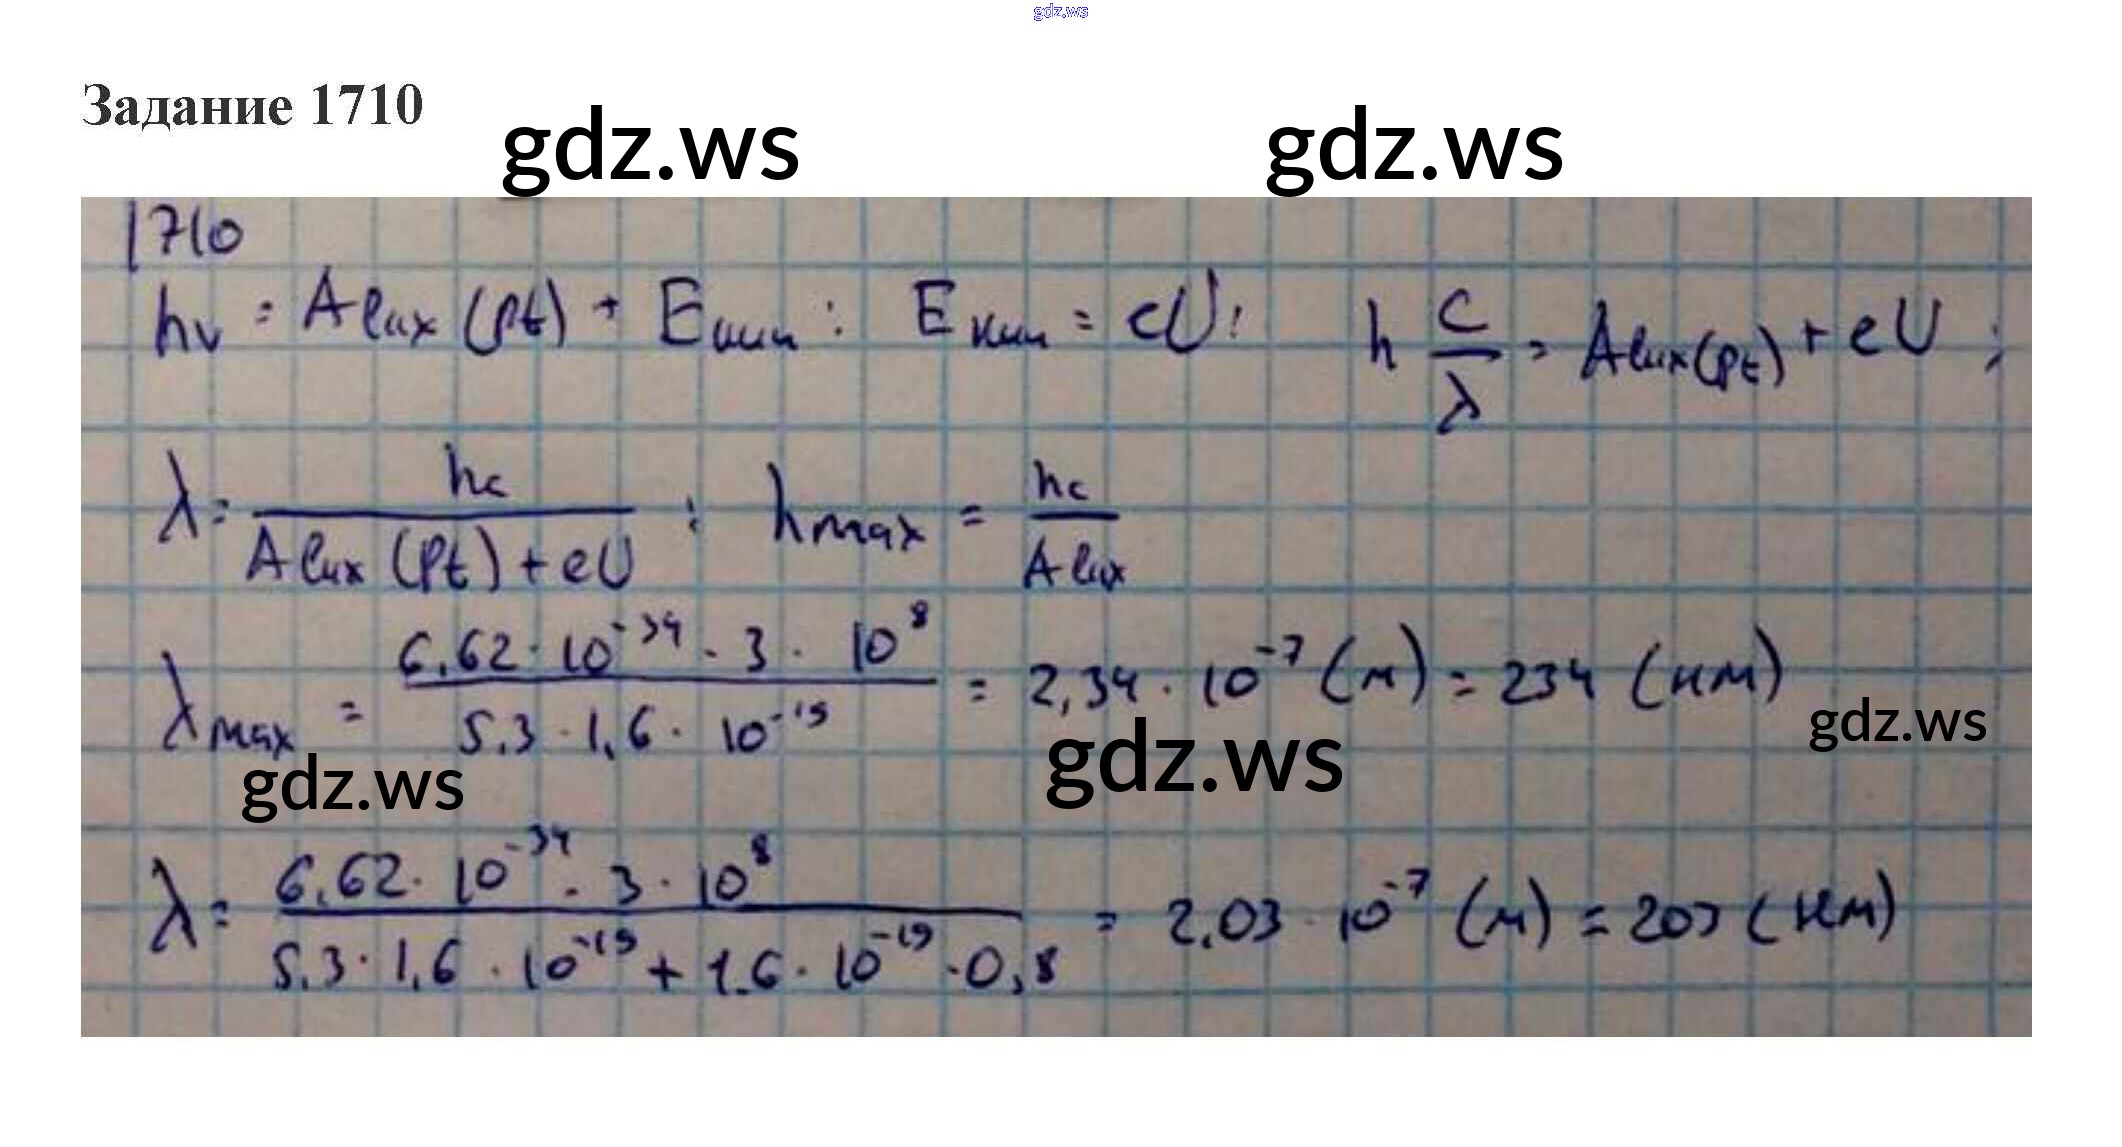 gdz.ws
Задание 1710
gdz.ws gdz.ws
1710
hν = Aвых (Pt) + Eкин ; Eкин = eU; h c/λ = Aвых(Pt) + eU ;
λ = hc / Aвых (Pt) + eU ; hmax = hc / Aвых
λmax = 6,62 · 10^-34 · 3 · 10^8 / 5,3 · 1,6 · 10^-19 = 2,34 · 10^-7 (м) = 234 (нм)
gdz.ws gdz.ws gdz.ws
λ = 6,62 · 10^-34 · 3 · 10^8 / 5,3 · 1,6 · 10^-19 + 1,6 · 10^-19 · 0,8 = 2,03 · 10^-7 (м) = 203 (нм)